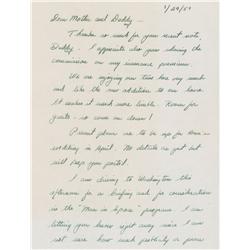 1/29/59
Dear Mother and Daddy —
Thanks so much for your recent note,
Daddy. I appreciate also your sharing the
commission on my insurance premium.
We are enjoying our time here very much
and like the new addition to our house.
It makes it much more livable. Room for
guests — so come on down!
Present plans are to be up for
wedding in April. No details as yet but
will keep you posted.
I am driving to Washington this
afternoon for a briefing and for consideration
in the "Man in Space" program. I am
letting you know right away since I am
not sure how much publicity or